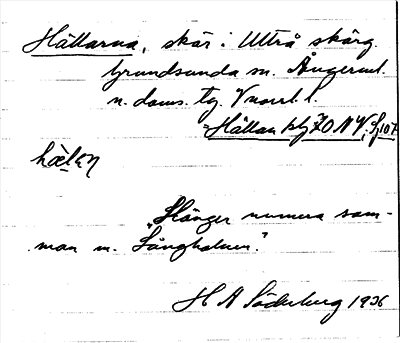 Hällarna, skär i Ulvö skärg.
Grundsunda sn. Ångerml.
n. doms. tg. Vnorrl. l.
=Hällan
hæ̀lan
"Hänger numera sam-
man m. Långholmen."
H A Söderberg 1936